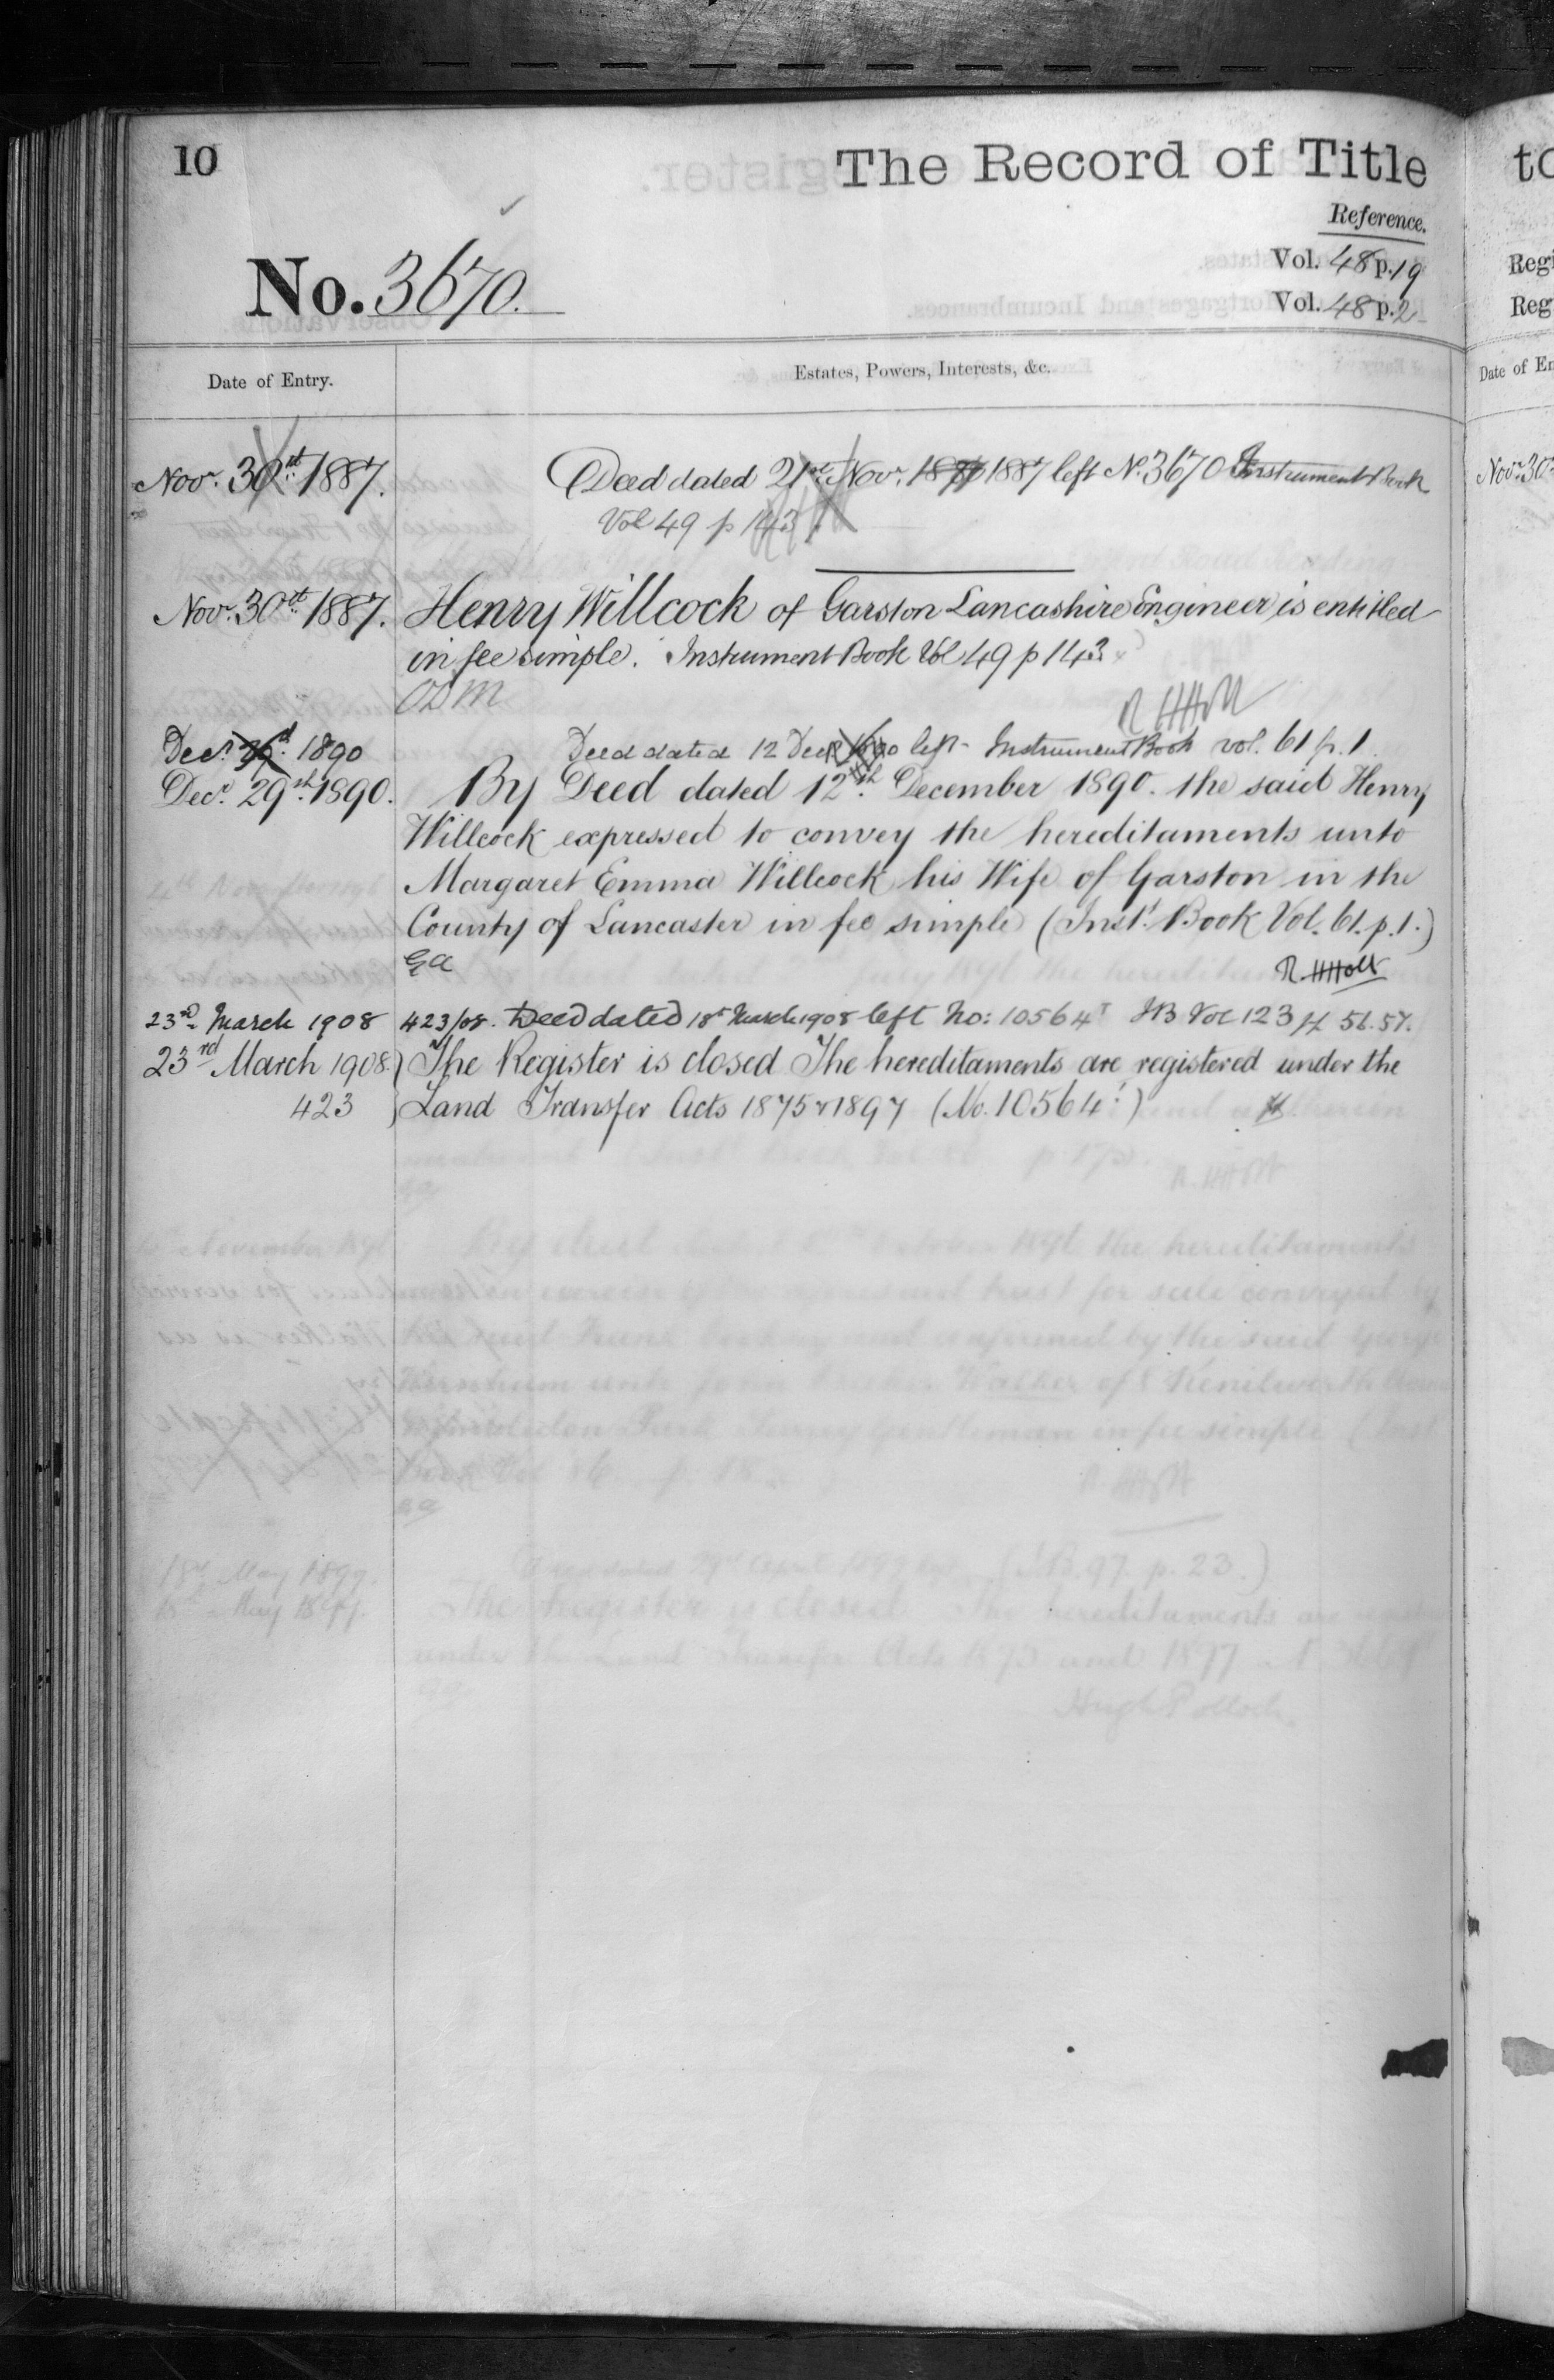 10
The Record of Title
Reference.
No. 3670.
Vol. 48 p. 19
Vol. 48 p. 2
Date of Entry.
Estates, Powers, Interests, &c.
Novr. 30th 1887.
Deed dated 21st Novr. 1887 left No. 3670 Instrument Book
Vol 49 p 143
Novr. 30th 1887.
Henry Willcock of Garston Lancashire Engineer is entitled
in fee simple. Instrument Book Vol 49 p 143
ODM
R H Holt
Decr. 1890
Deed dated 12 Decr 1890 left Instrument Book vol. 61 p. 1.
Decr. 29th 1890.
By Deed dated 12th December 1890. the said Henry
Willcock expressed to convey the hereditaments unto
Margaret Emma Willcock his Wife of Garston in the
County of Lancaster in fee simple (Inst. Book Vol. 61. p. 1.)
R H Holt
23rd March 1908
423/08. Deed dated 18th March 1908 left No: 10564 I B Vol 123 56.57.
23rd March 1908
The Register is closed The hereditaments are registered under the
423
Land Transfer Acts 1875 & 1897 (No. 10564)
to
Regi
Reg
Date of En
Novr. 30